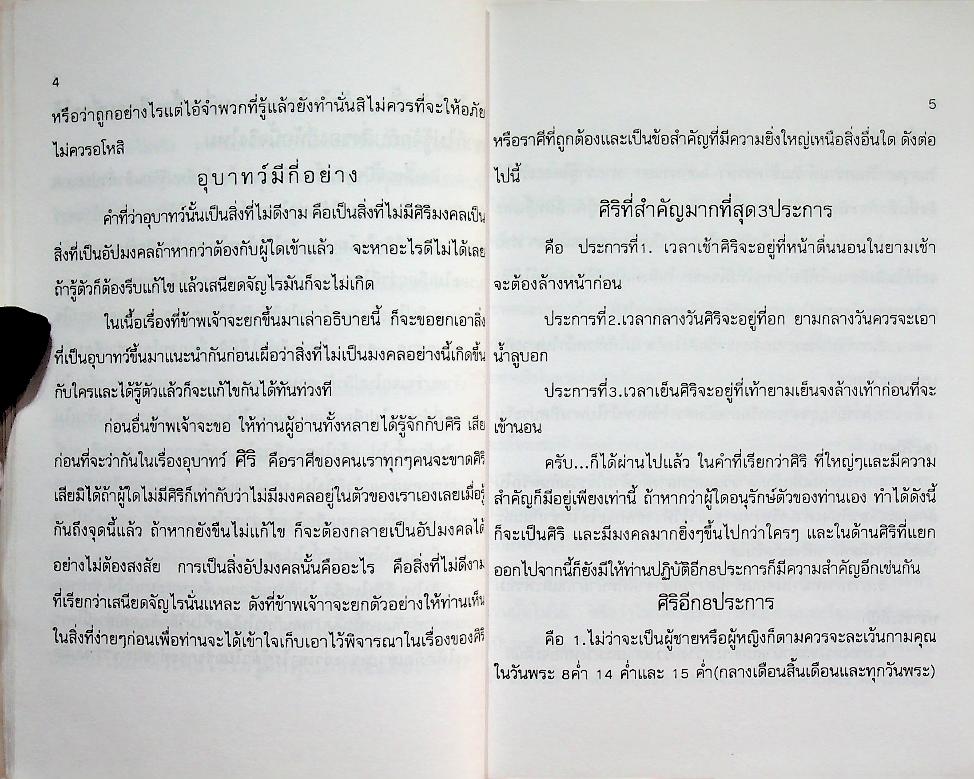 4
หรือว่าถูกอย่างไรแต่ไอ้จำพวกที่รู้แล้วยังทำนั่นสิไม่ควรที่จะให้อภัย
ไม่ควรอโหสิ
อุบาทว์มีกี่อย่าง
คำที่ว่าอุบาทว์นั้นเป็นสิ่งที่ไม่ดีงาม คือเป็นสิ่งที่ไม่มีศิริมงคลเป็น
สิ่งที่เป็นอัปมงคลถ้าหากว่าต้องกับผู้ใดเข้าแล้ว จะหาอะไรดีไม่ได้เลย
ถ้ารู้ตัวก็ต้องรีบแก้ไข แล้วเสนียดจัญไรมันก็จะไม่เกิด
ในเนื้อเรื่องที่ข้าพเจ้าจะยกขึ้นมาเล่าอธิบายนี้ ก็จะขอยกเอาสิ่ง
ที่เป็นอุบาทว์ขึ้นมาแนะนำกันก่อนเผื่อว่าสิ่งที่ไม่เป็นมงคลอย่างนี้เกิดขึ้น
กับใครและได้รู้ตัวแล้วก็จะแก้ไขกันได้ทันท่วงที
ก่อนอื่นข้าพเจ้าจะขอ ให้ท่านผู้อ่านทั้งหลายได้รู้จักกับศิริ เสีย
ก่อนที่จะว่ากันในเรื่องอุบาทว์ ศิริ คือราศีของคนเราทุกๆคนจะขาดศิริ
เสียมิได้ถ้าผู้ใดไม่มีศิริก็เท่ากับว่าไม่มีมงคลอยู่ในตัวของเราเองเลยเมื่อรู้
กันถึงจุดนี้แล้ว ถ้าหากยังขืนไม่แก้ไข ก็จะต้องกลายเป็นอัปมงคลได้
อย่างไม่ต้องสงสัย การเป็นสิ่งอัปมงคลนั้นคืออะไร คือสิ่งที่ไม่ดีงาม
ที่เรียกว่าเสนียดจัญไรนั่นแหละ ดังที่ข้าพเจ้าาจะยกตัวอย่างให้ท่านเห็น
ในสิ่งที่ง่ายๆก่อนเพื่อท่านจะได้เข้าใจเก็บเอาไว้พิจารณาในเรื่องของศิริ
5
หรือราศีที่ถูกต้องและเป็นข้อสำคัญที่มีความยิ่งใหญ่เหนือสิ่งอื่นใด ดังต่อ
ไปนี้
ศิริที่สำคัญมากที่สุด3ประการ
คือ ประการที่1. เวลาเช้าศิริจะอยู่ที่หน้าตื่นนอนในยามเช้า
จะต้องล้างหน้าก่อน
ประการที่2.เวลากลางวันศิริจะอยู่ที่อก ยามกลางวันควรจะเอา
น้ำลูบอก
ประการที่3.เวลาเย็นศิริจะอยู่ที่เท้ายามเย็นจงล้างเท้าก่อนที่จะ
เข้านอน
ครับ...ก็ได้ผ่านไปแล้ว ในคำที่เรียกว่าศิริ ที่ใหญ่ๆและมีความ
สำคัญก็มีอยู่เพียงเท่านี้ ถ้าหากว่าผู้ใดอนุรักษ์ตัวของท่านเอง ทำได้ดังนี้
ก็จะเป็นศิริ และมีมงคลมากยิ่งๆขึ้นไปกว่าใครๆ และในด้านศิริที่แยก
ออกไปจากนี้ก็ยังมีให้ท่านปฏิบัติอีก8ประการก็มีความสำคัญอีกเช่นกัน
ศิริอีก8ประการ
คือ 1.ไม่ว่าจะเป็นผู้ชายหรือผู้หญิงก็ตามควรจะละเว้นกามคุณ
ในวันพระ 8ค่ำ 14 ค่ำและ 15 ค่ำ(กลางเดือนสิ้นเดือนและทุกวันพระ)